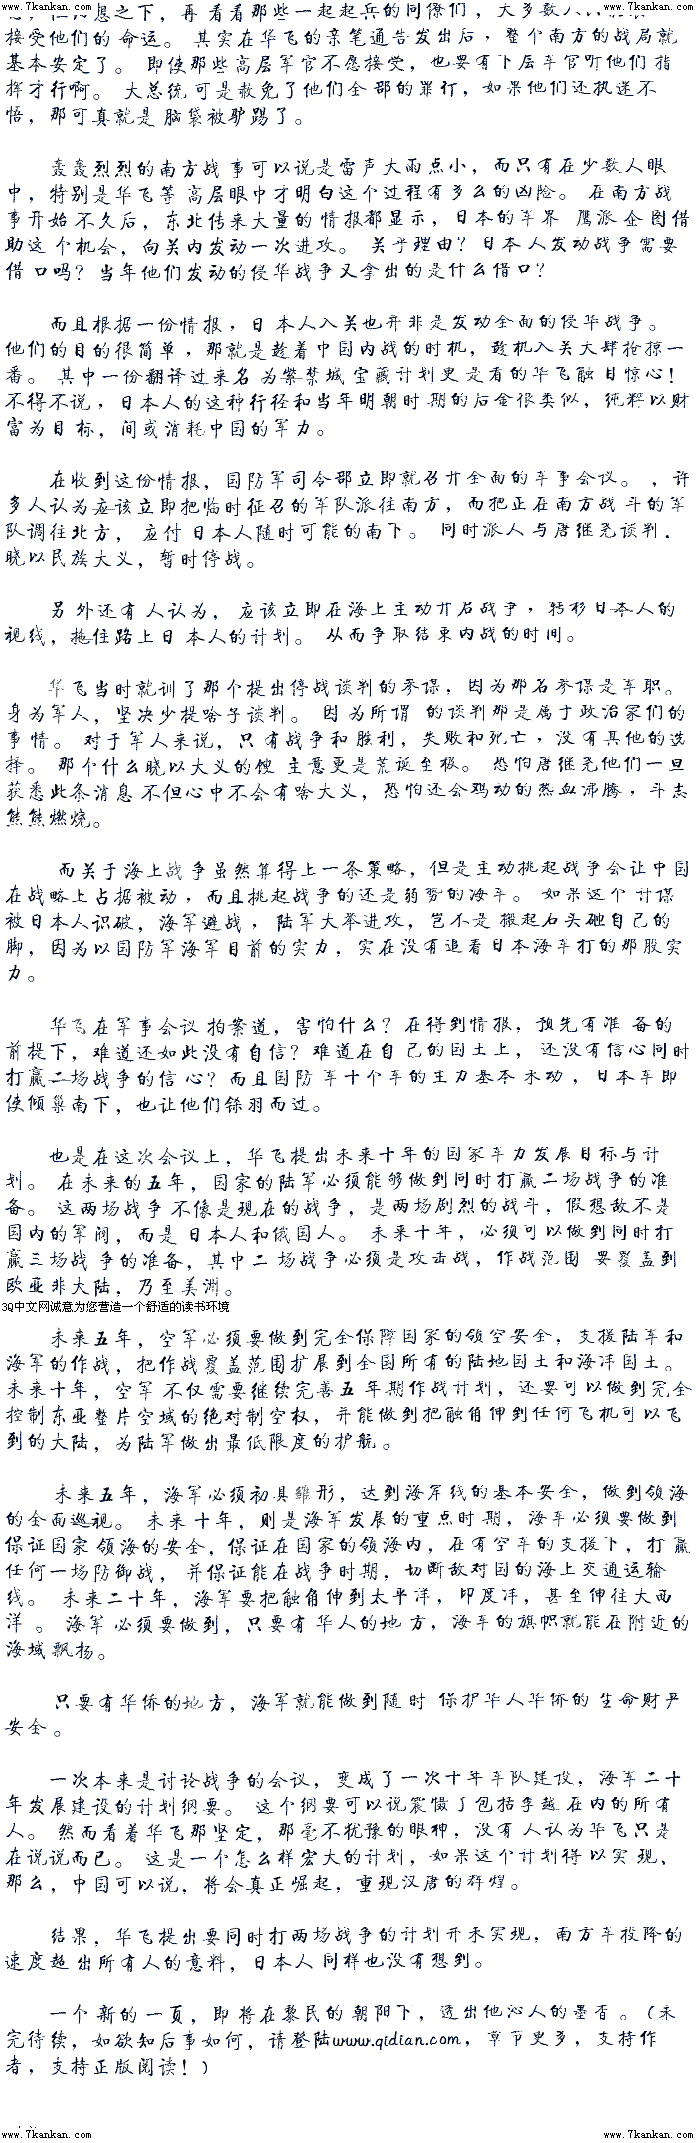 www.7kankan.com www.7kankan.com
息之下，再看看那些一起起兵的同僚们，大多数人
接受他们的命运。 其实在华飞的亲笔通告发出后，整个南方的战局就
基本安定了。 即使那些高层军官不愿接受，也要有下层军官听他们指
挥才行啊。 大总统可是赦免了他们全部的罪行，如果他们还执迷不
悟，那可真就是脑袋被驴踢了。
轰轰烈烈的南方战事可以说是雷声大雨点小，而只有在少数人眼
中，特别是华飞等高层眼中才明白这个过程有多么的凶险。 在南方战
事开始不久后，东北传来大量的情报都显示，日本的军界 鹰派企图借
助这个机会，向关内发动一次进攻。 关乎理由？日本人发动战争需要
借口吗？当年他们发动的侵华战争又拿出的是什么借口？
而且根据一份情报，日本人入关也并非是发动全面的侵华战争。
他们的目的很简单，那就是趁着中国内战的时机，趁机入关大肆抢掠一
番。 其中一份翻译过来名为紫禁城宝藏计划更是看的华飞触目惊心！
不得不说，日本人的这种行径和当年明朝时期的后金很类似，纯粹以财
富为目标，间或消耗中国的军力。
在收到这份情报，国防军司令部立即就召开全面的军事会议。 ，许
多人认为应该立即把临时征召的军队派往南方，而把正在南方战斗的军
队调往北方，应付日本人随时可能的南下。 同时派人与唐继尧谈判．
晓以民族大义，暂时停战。
另外还有人认为，应该立即在海上主动开启战争，转移日本人的
视线，拖住路上日本人的计划。 从而争取结束内战的时间。
华飞当时就训了那个提出停战谈判的参谋，因为那名参谋是军职。
身为军人，坚决少提啥子谈判。 因为所谓 的谈判那是属于政治家们的
事情。 对于军人来说，只有战争和胜利，失败和死亡，没有其他的选
择。 那个什么晓以大义的馊 主意更是荒诞至极。 恐怕唐继尧他们一旦
获悉此条消息不但心中不会有啥大义，恐怕还会鸡动的热血沸腾，斗志
熊熊燃烧。
而关于海上战争虽然算得上一条策略，但是主动挑起战争会让中国
在战略上占据被动，而且挑起战争的还是弱势的海军。 如果这个计谋
被日本人识破，海军避战，陆军大举进攻，岂不是搬起石头砸自己的
脚，因为以国防军海军目前的实力，实在没有追着日本海军打的那股实
力。
华飞在军事会议拍案道，害怕什么？在得到情报，预先有准 备的
前提下，难道还如此没有自信？难道在自己的国土上，还没有信心同时
打赢二场战争的信心？而且国防军十个军的主力基本未动，日本军即
使倾巢南下，也让他们铩羽而过。
也是在这次会议上，华飞提出未来十年的国家军力发展目标与计
划。 在未来的五年，国家的陆军必须能够做到同时打赢二场战争的准
备。 这两场战争不像是现在的战争，是两场剧烈的战斗，假想敌不是
国内的军阀，而是日本人和俄国人。 未来十年，必须可以做到同时打
赢三场战争的准备，其中二场战争必须是攻击战，作战范围 要覆盖到
欧亚非大陆，乃至美洲。
3Q中文网诚意为您营造一个舒适的读书环境
未来五年，空军必须要做到完全保障国家的领空安全，支援陆军和
海军的作战，把作战覆盖范围扩展到全国所有的陆地国土和海洋国土。
未来十年，空军不仅需要继续完善五年期作战计划，还要可以做到完全
控制东亚整片空域的绝对制空权，并能做到把触角伸到任何飞机可以飞
到的大陆，为陆军做出最低限度的护航。
未来五年，海军必须初具雏形，达到海岸线的基本安全，做到领海
的全面巡视。 未来十年，则是海军发展的重点时期，海军必须要做到
保证国家领海的安全，保证在国家的领海内，在有空军的支援下，打赢
任何一场防御战，并保证能在战争时期，切断敌对国的海上交通运输
线。 未来二十年，海军要把触角伸到太平洋，印度洋，甚至伸往大西
洋。 海军必须要做到，只要有华人的地方，海军的旗帜就能在附近的
海域飘扬。
只要有华侨的地方，海军就能做到随时 保护华人华侨的生命财产
安全。
一次本来是讨论战争的会议，变成了一次十年军队建设，海军二十
年发展建设的计划纲要。 这个纲要可以说震慑了包括李越在内的所有
人。 然而看着华飞那坚定，那毫不犹豫的眼神，没有人认为华飞只是
在说说而已。 这是一个怎么样宏大的计划，如果这个计划得以实现，
那么，中国可以说，将会真正崛起，重现汉唐的辉煌。
结果，华飞提出要同时打两场战争的计划并未实现，南方军投降的
速度超出所有人的意料，日本人同样也没有想到。
一个新的一页，即将在黎民的朝阳下，透出他沁人的墨香。（未
完待续，如欲知后事如何，请登陆www.qidian.com，章节更多，支持作
者，支持正版阅读！）
www.7kankan.com www.7kankan.com